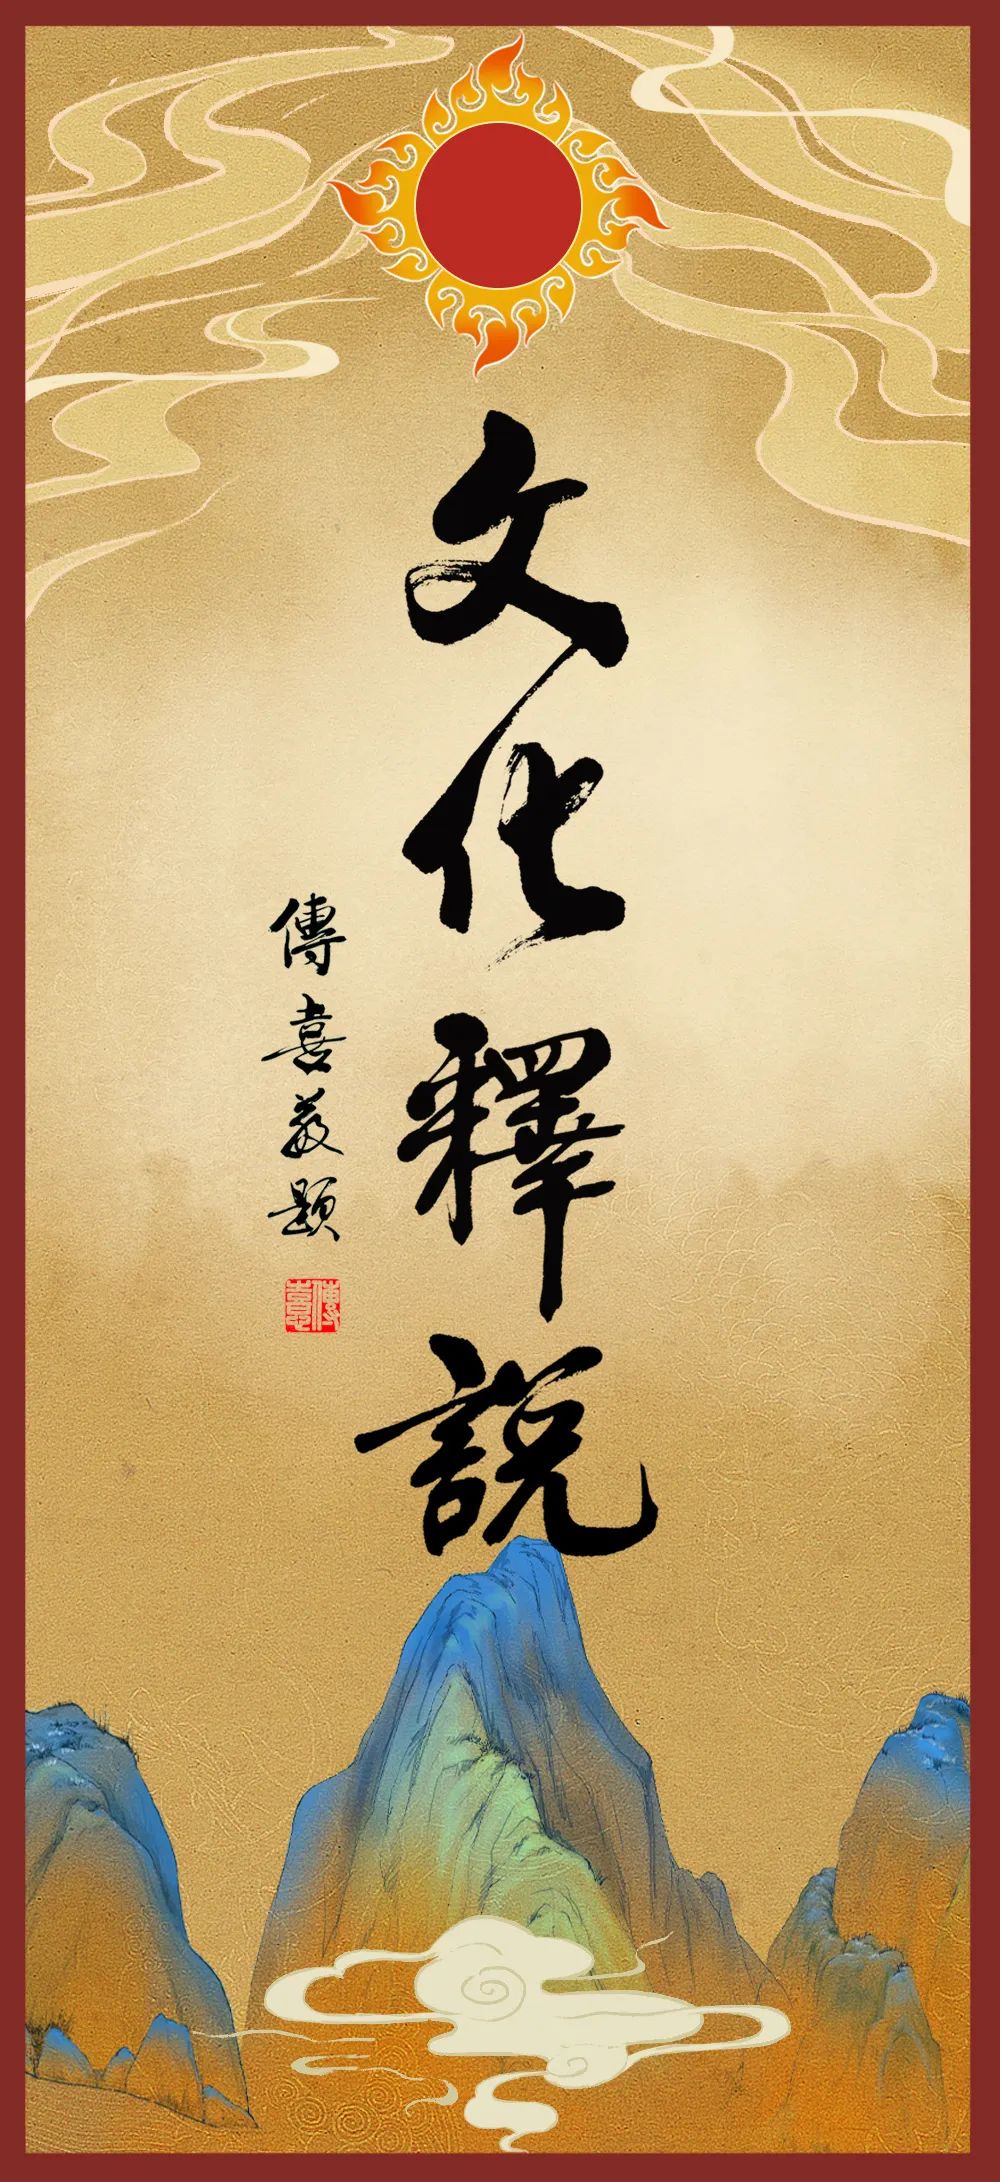 文化釋說
傳喜敬題
傳喜